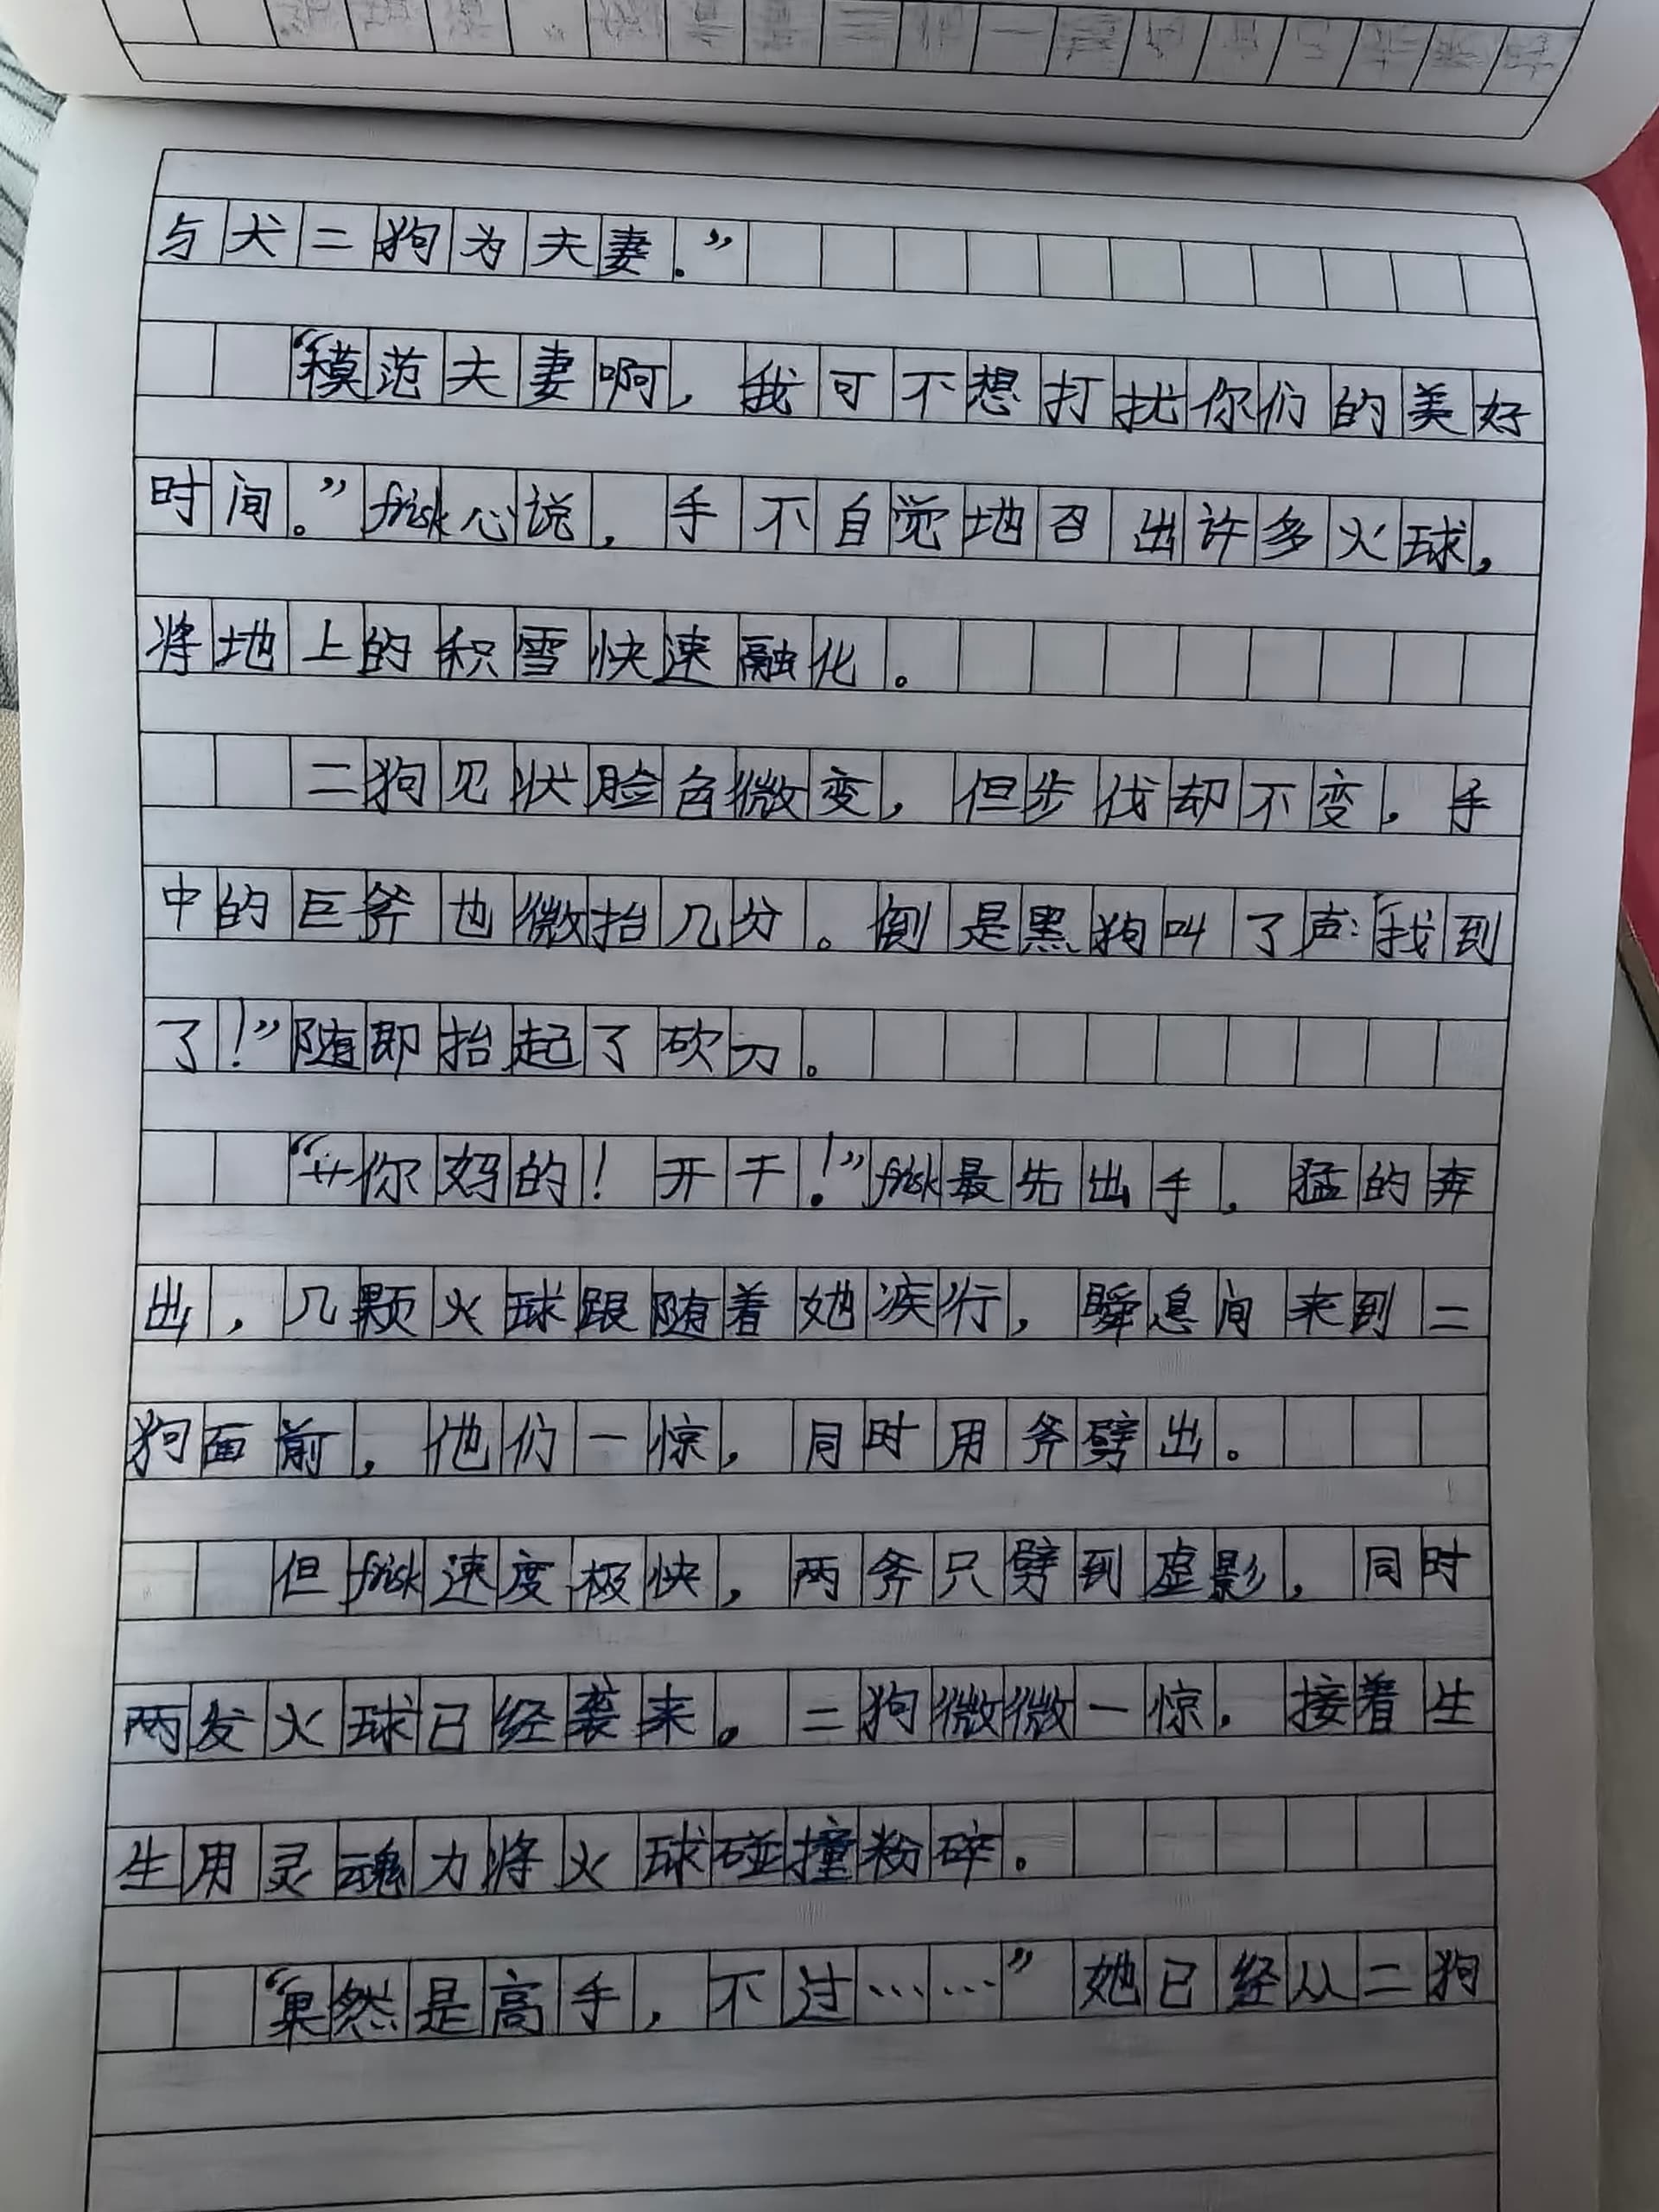 与犬二狗为夫妻.”
“模范夫妻啊，我可不想打扰你们的美好
时间。”frisk心说，手不自觉地召出许多火球，
将地上的积雪快速融化。
二狗见状脸色微变，但步伐却不变，手
中的巨斧也微抬几分。倒是黑狗叫了声：“找到
了！”随即抬起了砍刀。
“艹你妈的！开干！”frisk最先出手，猛的奔
出，几颗火球跟随着她疾行，瞬息间来到二
狗面前，他们一惊，同时用斧劈出。
但frisk速度极快，两斧只劈到虚影，同时
两发火球已经袭来。二狗微微一惊，接着生
生用灵魂力将火球碰撞粉碎。
“果然是高手，不过……”她已经从二狗